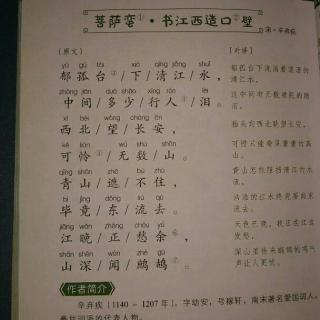 菩萨蛮①·书江西造口②壁
宋·辛弃疾
〔原文〕
〔对译〕
yù gū tái xià qīng jiāng shuǐ
郁孤台③/下/清江/水，
zhōng jiān duō shǎo xíng rén lèi
中间/多少/行人④/泪。
xī běi wàng cháng ān
西北/望/长安，
kě lián wú shù shān
可怜⑤/无数/山。
qīng shān zhē bú zhù
青山/遮/不住，
bì jìng dōng liú qù
毕竟/东/流去。
jiāng wǎn zhèng chóu yú
江晚/正/愁余⑥，
shān shēn wén zhè gū
山深/闻/鹧鸪⑦。
郁孤台下流淌着滚滚的
清江水，
这中间有无数难民的眼
泪。
抬头向西北眺望长安，
可惜只能看见重重的高
山。
青山怎能阻挡清江的水
流，
浩浩的江水终究要向东
流去。
天色已晚，我正在江边
发愁，
深山里传来鹧鸪的鸣叫
声让人更忧。
作者简介
辛弃疾（1140－1207年），字幼安，号稼轩，南宋著名爱国词人，
豪放词派的代表人物。